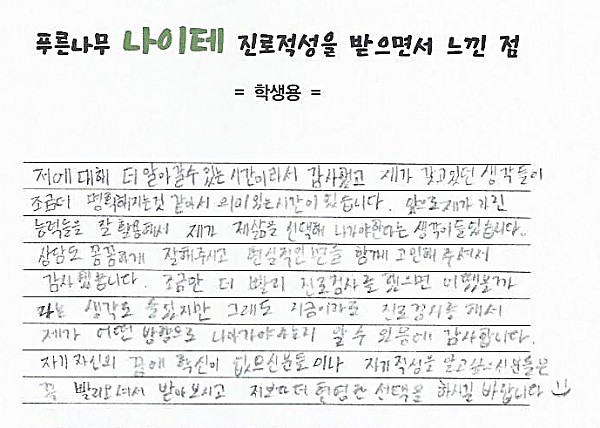 푸른나무 나이테 진로적성을 받으면서 느낀 점
= 학생용 =
저에 대해 더 알아갈수 있는 시간이라서 감사했고 제가 갖고있던 생각들이
조금더 명확해지는것 같아서 의미있는시간이 었습니다. 앞으로제가 가진
능력들을 잘 활용해서 제가 제삶을 인택해 나가야한다는 생각이들었습니다.
상담도 꼼꼼하게 잘해주시고 현실적인 면을 함께 고민해 주셔서
감사했습니다. 조금만 더 빨리 진로검사를 했으면 어땠을까
라는 생각도 들었지만 그래도 지금이라도 진로검사를 해서
제가 어떤 방향으로 나아가야하는지 알 수 있음에 감사합니다.
자기 자신의 꿈에 확신이 없으신분들이나 자기적성을 알고싶으시분들은
꼭 빨리오셔서 받아보시고 저보다더 현명한 선택을 하시길 바랍니다